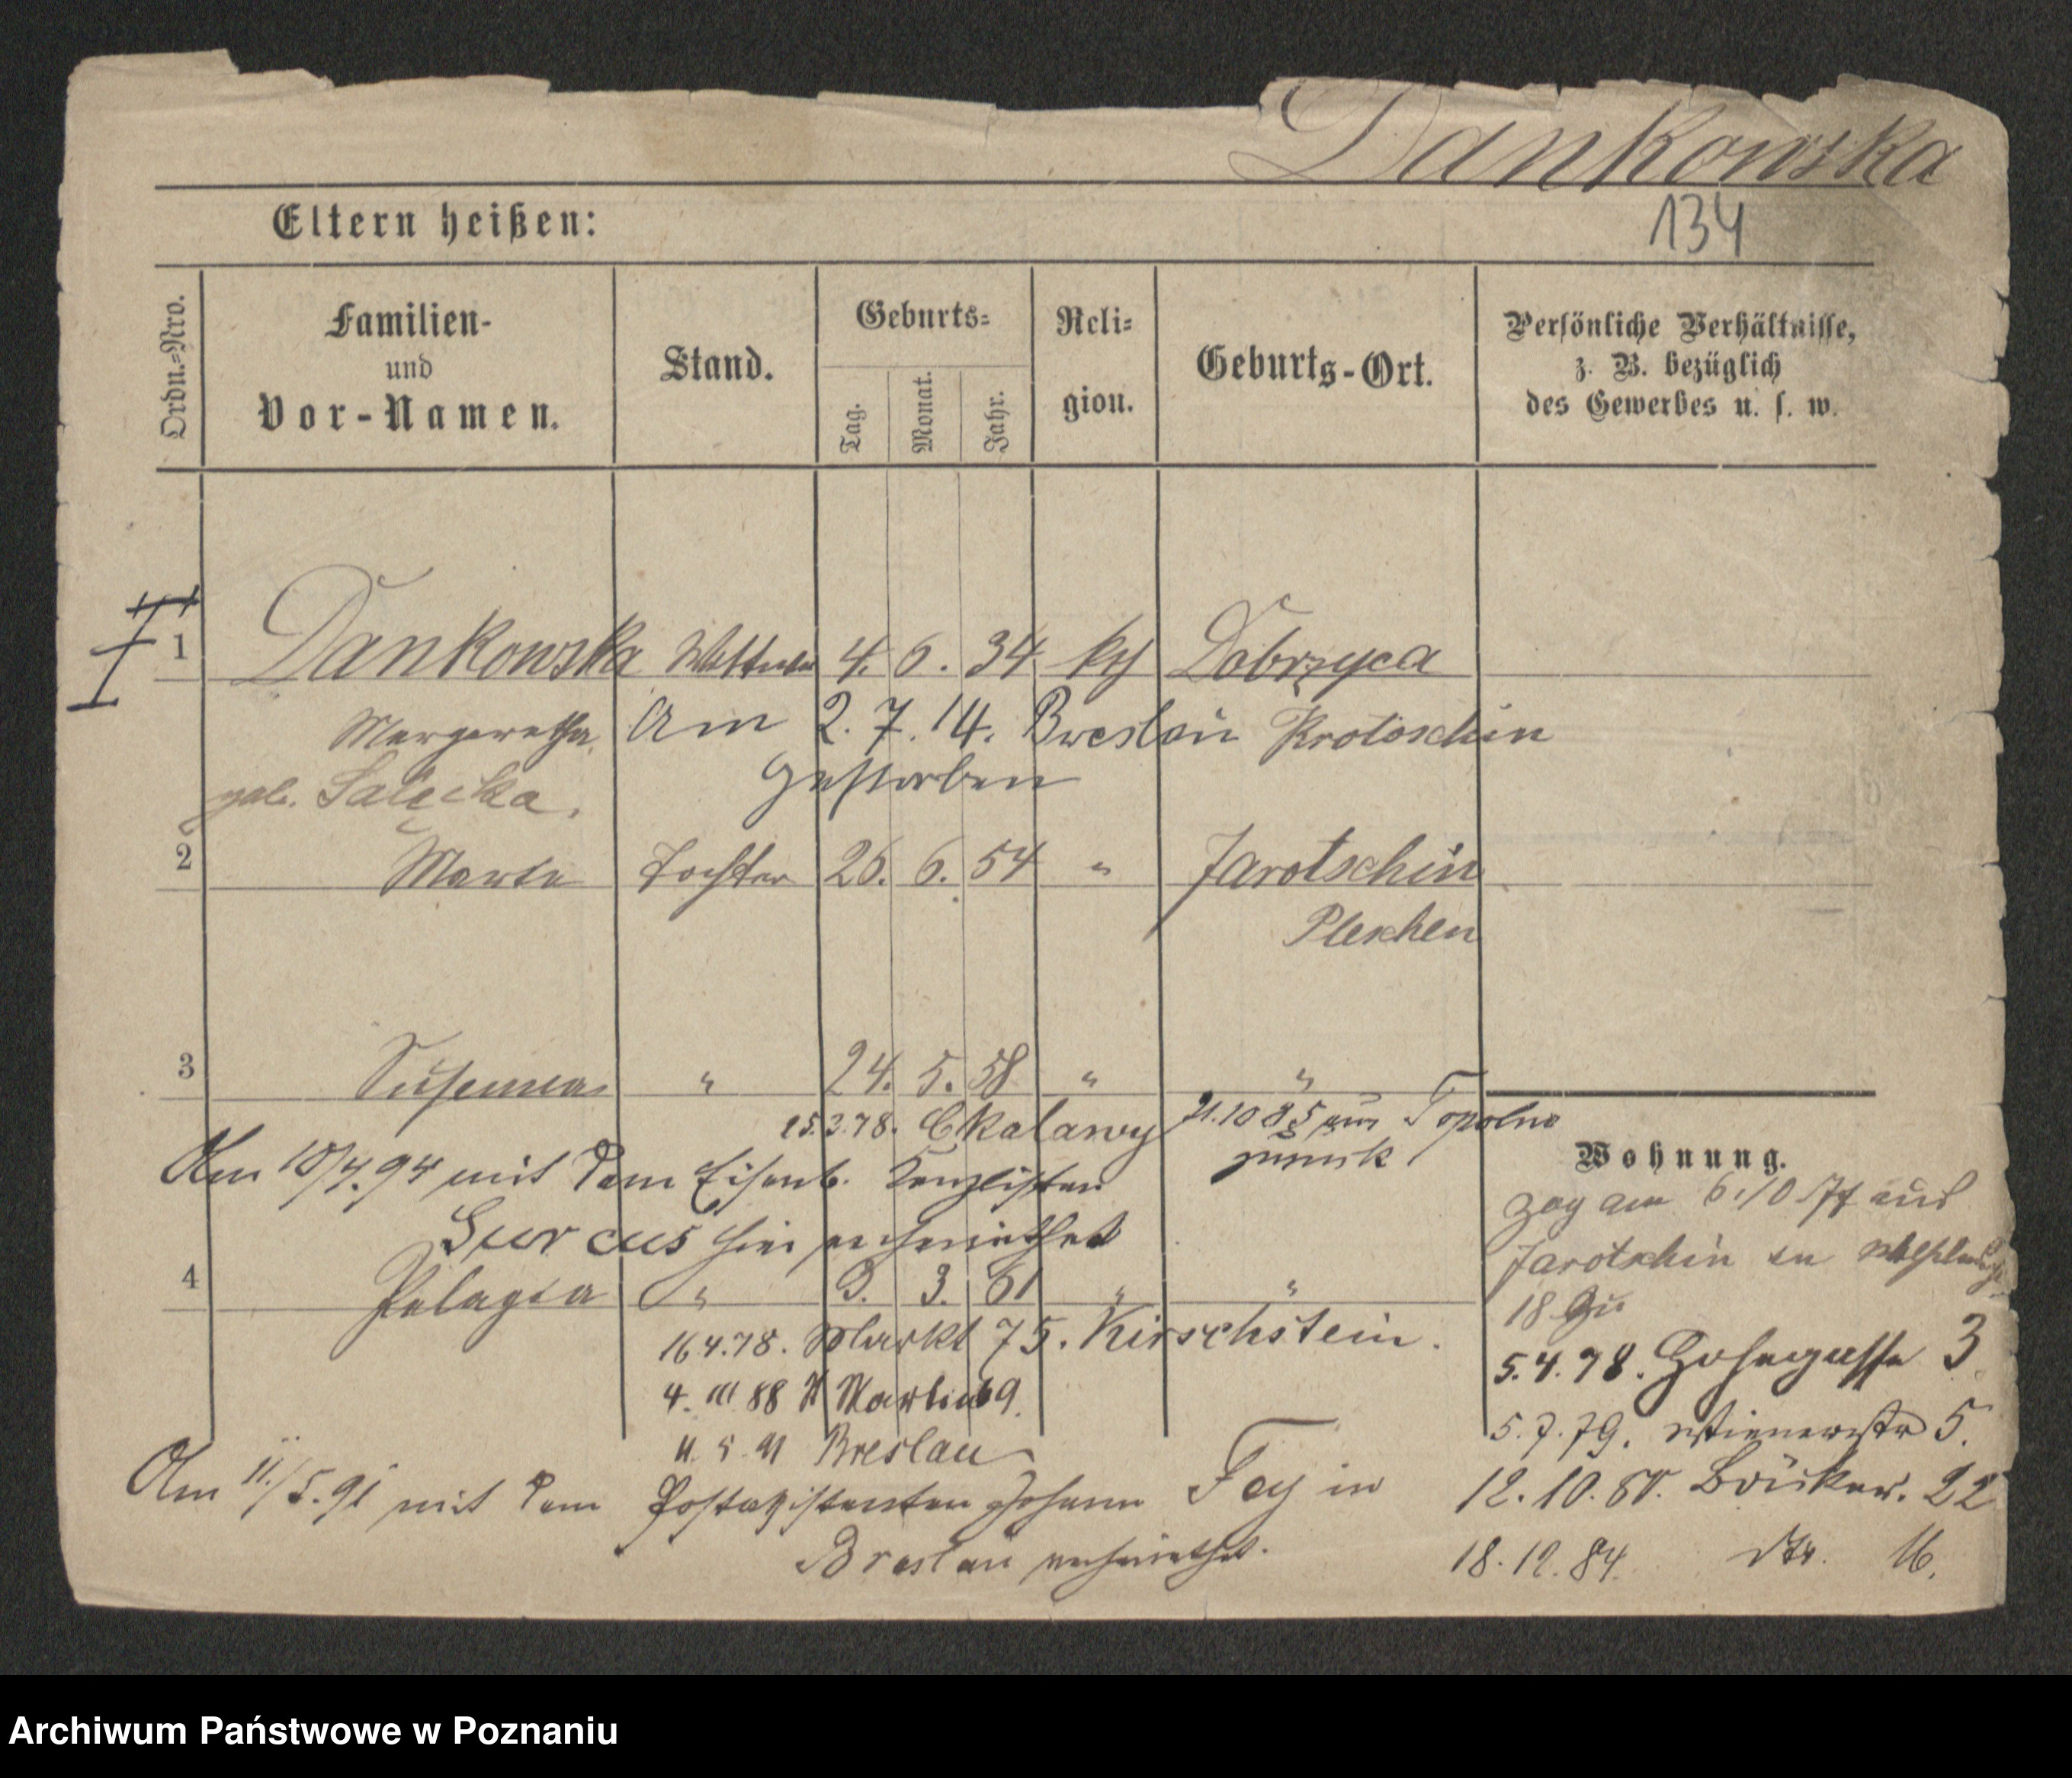 Dankowska
134
Eltern heißen:
Ordn.=Nro.
Familien-
und
Vor-Namen.
Stand.
Geburts=
Tag.
Monat.
Jahr.
Reli=
gion.
Geburts-Ort.
Persönliche Verhältnisse,
z. B. bezüglich
des Gewerbes u. s. w.
1 Dankowska 4. 6. 34 kth Dobrzyca
Margaretha Am 2. 7. 14. Breslau Krotoschin
geb. gestorben
2 Tochter 26. 6. 54 " Jarotschin
Pleschen
3 Susanna " 24. 5. 58 " "
25.3.78. 21.10 85 aus Topolno
zurück
Am 10/4.94 mit dem Eisenb. Kanzlisten
hier verheirathet
4 Pelagia " 3. 3. 61 " "
16 4.78. Markt 75. Kirschstein.
4. III 88 Martin 69.
11. 5. 91 Breslau
Am 11./5.91 mit dem Postassistenten Johann Fey in
Breslau verheirathet.
Wohnung.
zog am 6/10 77 aus
Jarotschin
18
5.4.78. 3
5.7.79. Wienerstr 5.
12.10.80. Bäcker. 22
18.12.84. Str. 16.
Archiwum Państwowe w Poznaniu